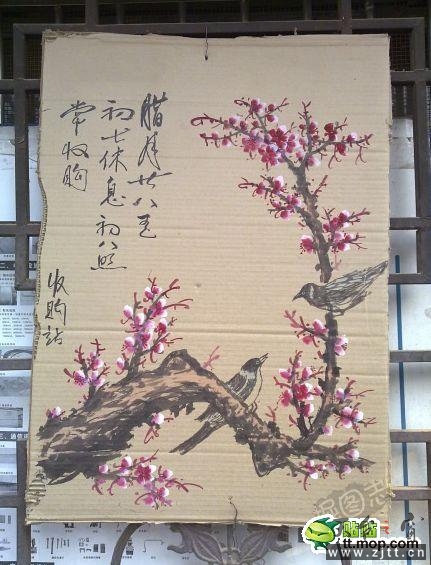 腊月廿八至
初七休息初八照
常收购
收购站
贴贴
tt.mop.com
www.zjtt.cn